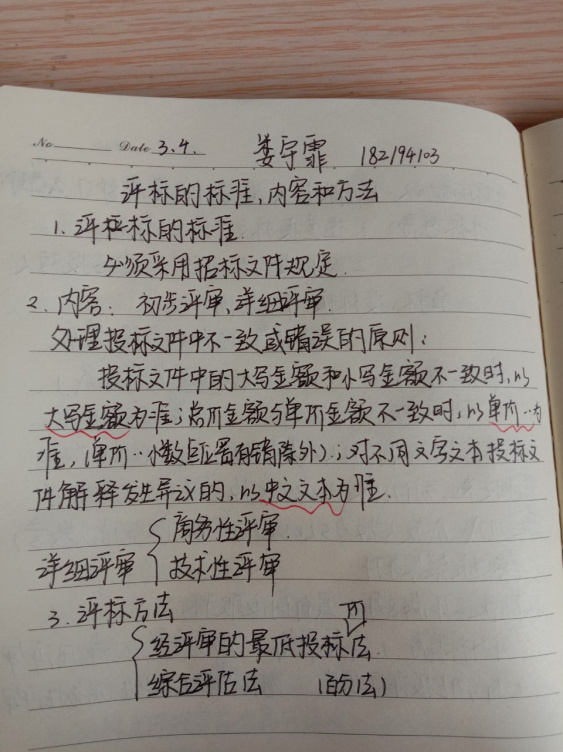 No Date 3.4. 娄宇霏 182194103
评标的标准,内容和方法
1.评标的标准.
必须采用招标文件规定.
2.内容:初步评审,详细评审.
处理投标文件中不一致或错误的原则:
投标文件中的大写金额和小写金额不一致时,以
大写金额为准;总价金额与单价金额不一致时,以单价··为
准,(单价··小数点位置有错除外).;对不同文字文本投标文
件解释发生异议的,以中文文本为准.
商务性评审.
详细评审
技术性评审
3.评标方法
经评审的最低投标价法.
综合评估法 (百分法)